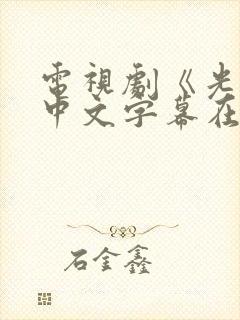 電視劇《光
中文字幕在
石金鑫